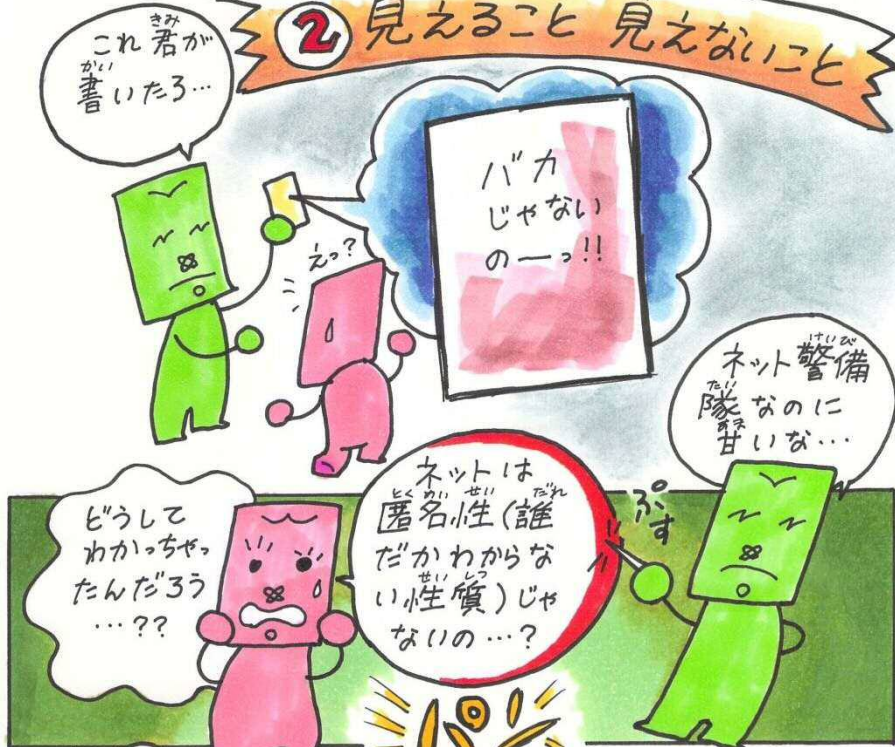 ② 見えること 見えないこと
これ君が
きみ
書いたろ…
かい
バカ
じゃない
のーっ!!
えっ?
ネット警備
けいび
隊なのに
たい
甘いな…
あま
どうして
わかっちゃっ
たんだろう
…??
ネットは
匿名性(誰
とくめいせい だれ
だかわからな
い性質)じゃ
せいしつ
ないの…?
ぷす